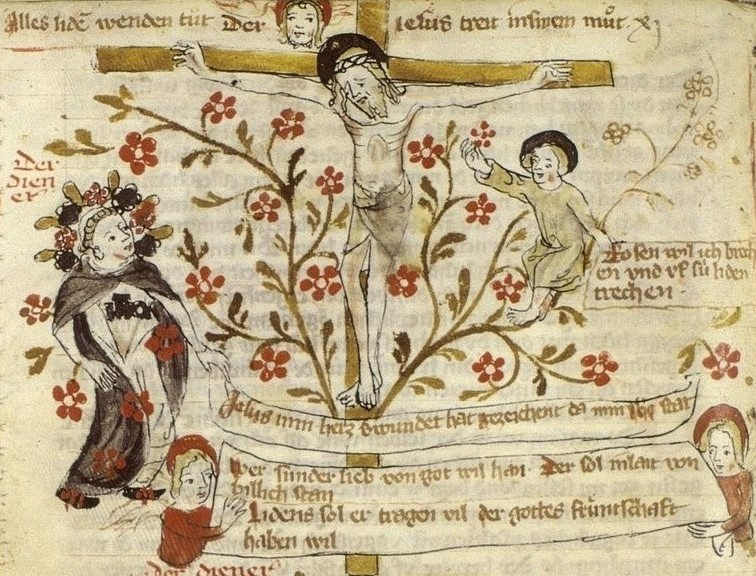 Alles lidē wenden tůt Der Iesus treit in sinem můt
Der
dien
er
Rosen wil ich brech
en vnd vf sú liden
trechen
Iesus min herz
hat gezeichent da min
Wer sunder lieb von got wil han Der sol
billich stan
Lidens sol er tragen vil der gottes frúntschaft
haben wil
der diener